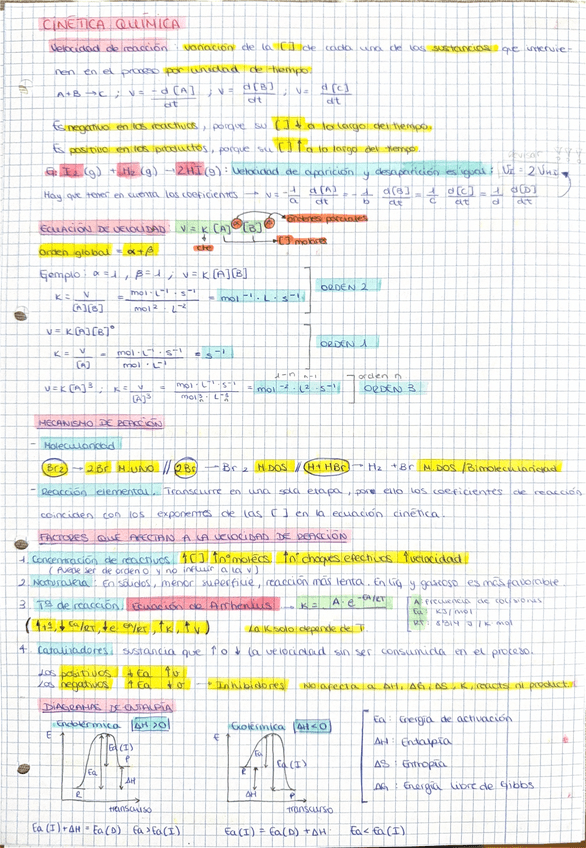 CINÉTICA QUÍMICA
Velocidad de reacción: variación de la [ ] de cada una de las sustancias que intervie-
nen en el proceso por unidad de tiempo.
A+B → C ; V = -d[A]/dt ; V = d[B]/dt ; V = d[C]/dt
Es negativo en los reactivos, porque su [ ] ↓ a lo largo del tiempo.
Es positivo en los productos, porque su [ ] ↑ a lo largo del tiempo
I2(g) + H2(g) → 2HI(g): Velocidad de aparición y desaparición es igual:
Hay que tener en cuenta los coeficientes → V = -1/a d[A]/dt = -1/b d[B]/dt = 1/c d[C]/dt = 1/d d[D]/dt
ECUACIÓN DE VELOCIDAD V = K [A]^α [B]^β → órdenes parciales
cte [ ] molares
Orden global = α+β
Ejemplo: α=1, β=1, V=K[A][B]
K = V/[A][B] = mol·L⁻¹·s⁻¹/mol²·L⁻² = mol⁻¹·L·s⁻¹ ORDEN 2
V=K[A][B]⁰
K = V/[A] = mol·L⁻¹·s⁻¹/mol·L⁻¹ = s⁻¹ ORDEN 1
1-n n-1 orden n
V=K[A]³ ; K = V/[A]³ = mol·L⁻¹·s⁻¹/mol³·L⁻³ = mol⁻²·L²·s⁻¹ ORDEN 3
MECANISMO DE REACCIÓN
- Molecularidad
Br2 → 2Br M.UNO // 2Br → Br2 M.DOS // H+HBr → H2 + Br M.DOS /Bimolecularidad
- Reacción elemental. Transcurre en una sola etapa, por ello los coeficientes de reacción
coinciden con los exponentes de las [ ] en la ecuación cinética.
FACTORES QUE AFECTAN A LA VELOCIDAD DE REACCIÓN
1. Concentración de reactivos ↑[ ] ↑nº molécs ↑nº choques efectivos ↑velocidad
(Puede ser de orden 0 y no influir a la v)
2. Naturaleza: En sólidos, menor superficie, reacción más lenta. En líq y gaseoso es más favorable
3. Tª de reacción. Ecuación de Arrhenius → K = A·e^-Ea/RT
A frecuencia de colisiones
Ea KJ/mol
(↑Tª, ↓Ea/RT, ↓e Ea/RT, ↑K, ↑V) La K solo depende de T
4. Catalizadores: sustancia que ↑ o ↓ la velocidad sin ser consumida en el proceso.
Los positivos ↓Ea ↑v
Los negativos ↑Ea ↓v → Inhibidores No afecta a ΔH, ΔG, ΔS, K, reacts ni product.
DIAGRAMAS DE ENTALPÍA
Endotérmica ΔH>0 Exotérmica ΔH<0
E Ea Ea(I) R P ΔH transcurso
E Ea Ea(I) R P ΔH transcurso
Ea: Energía de activación
ΔH: Entalpía
ΔS: Entropía
ΔG: Energía libre de Gibbs
Ea(I)+ΔH = Ea(D) Ea>Ea(I) Ea(I) = Ea(D) + ΔH Ea<Ea(I)